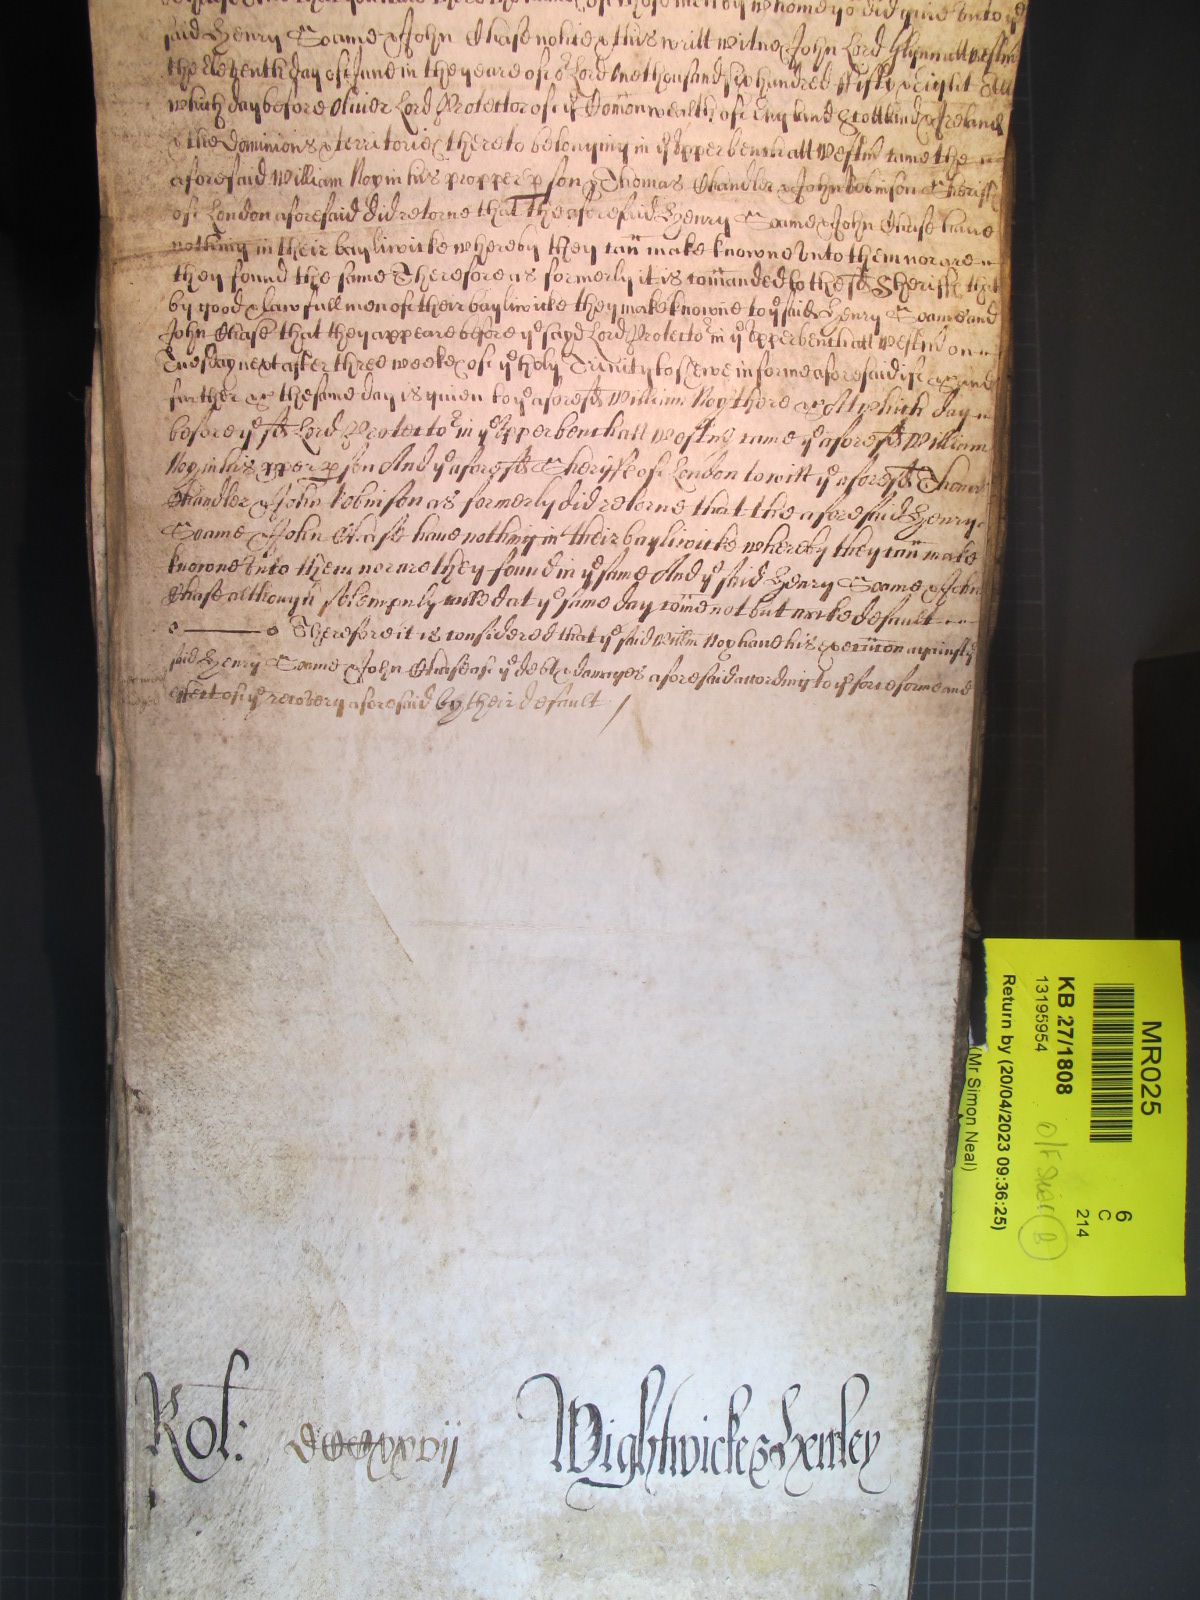 said Henry Soame & John Chase notice & this writt witnes John Lord Glynn att Westm̃
the Eleventh day of June in the yeare of oʳ Lord One thousand six hundred fifty & eight Att
which day before Oliver Lord Protector of yᵉ Com̃onwealth of England Scottland & Ireland
& the Dominions & territories thereto belonging in yᵉ Upperbench att Westm̃ came the
aforesaid William Noy in his propper ꝑson & Thomas Chandler & John Robinson Sheriffs
of London aforesaid did retorne that the aforesaid Henry Soame & John Chase have
nothing in their bayliwicke whereby they can make knowne unto them nor are
they found in the same Therefore as formerly it is com̃anded to the sᵈ Sheriffs that
by good & lawfull men of their bayliwicke they make knowne to yᵉ said Henry Soame and
John Chase that they appeare before yᵉ sayd Lord Protectoʳ in yᵉ Upperbench att Westm̃ on
Tuesday next after three weekes of yᵉ holy Trinity to shewe in forme aforesaid if &c and
further &c the same day is given to yᵉ aforesᵈ William Noy there &c Att which day
before yᵉ sᵈ Lord Protectoʳ in yᵉ Upperbench att Westm̃ came yᵉ aforesᵈ William
Noy in his ꝓper ꝑson And yᵉ aforesᵈ Sheryffe of London to witt yᵉ aforesᵈ Thomas
Chandler & John Robinson as formerly did retorne that the aforesaid Henry
Soame & John Chase have nothing in their bayliwicke whereby they can make
knowne unto them nor are they found in yᵉ same And yᵉ said Henry Soame & John
Chase although solempnly called at yᵉ same day come not but make default
Therefore it is considered that yᵉ said Willm Noy have his execution against yᵉ
said Henry Soame & John Chase of yᵉ debt & damages aforesaid according to yᵉ force forme and
effect of yᵉ recovery aforesaid by their default /
Rol:
Wightwicke & Henley
MR025
KB 27/1808
13195954
Return by (20/04/2023 09:36:25)
(Mr Simon Neal)
6
C
214